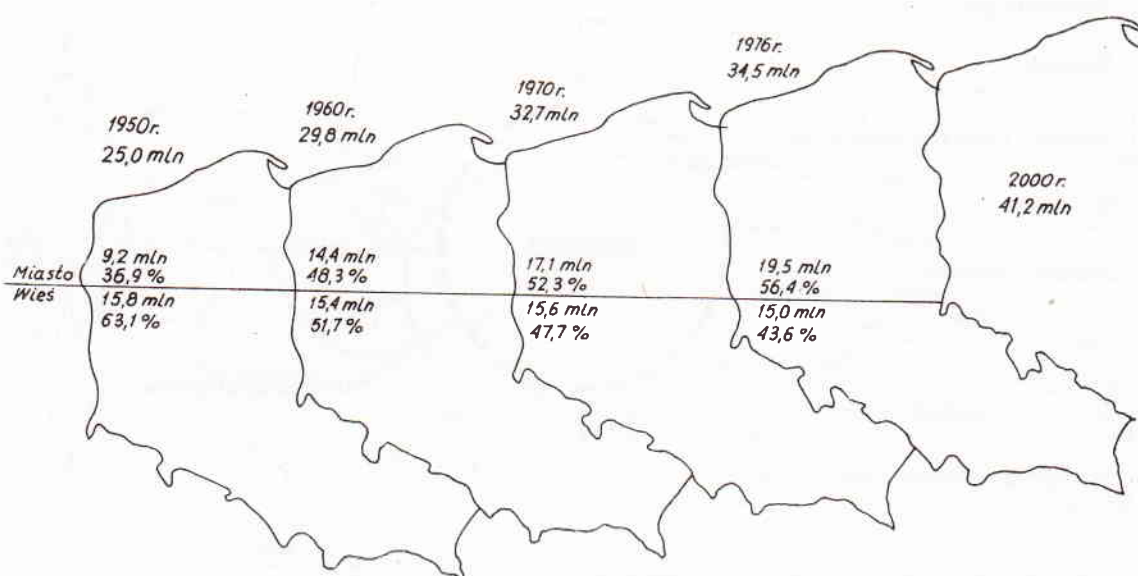 1950 r.
25,0 mln
1960 r.
29,8 mln
1970 r.
32,7 mln
1976 r.
34,5 mln
2000 r.
41,2 mln
Miasto
Wieś
9,2 mln
36,9 %
15,8 mln
63,1 %
14,4 mln
48,3 %
15,4 mln
51,7 %
17,1 mln
52,3 %
15,6 mln
47,7 %
19,5 mln
56,4 %
15,0 mln
43,6 %